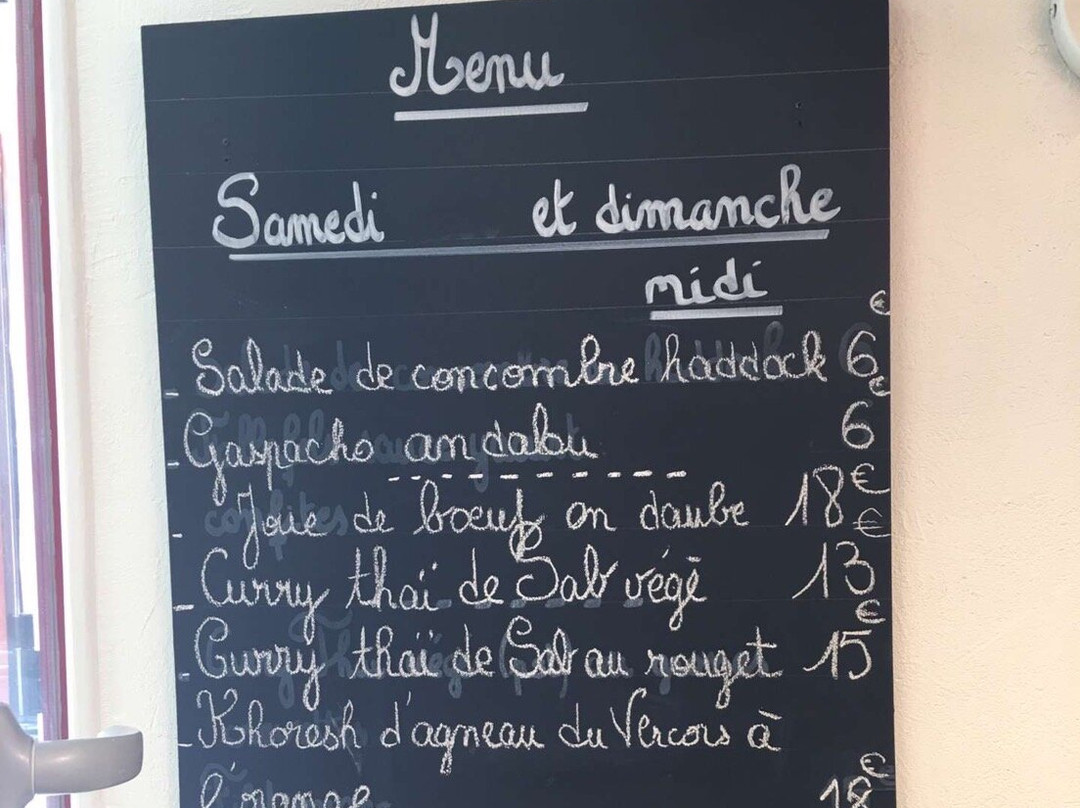 Menu
Samedi et dimanche
midi
- Salade de concombre haddock 6€
- Gaspacho andalou 6€
- Joue de boeuf en daube 18€
- Curry thaï de Sab végé 13€
- Curry thaï de Sab au rouget 15€
- Khoresh d'agneau du Vercors à
l'orange 18€